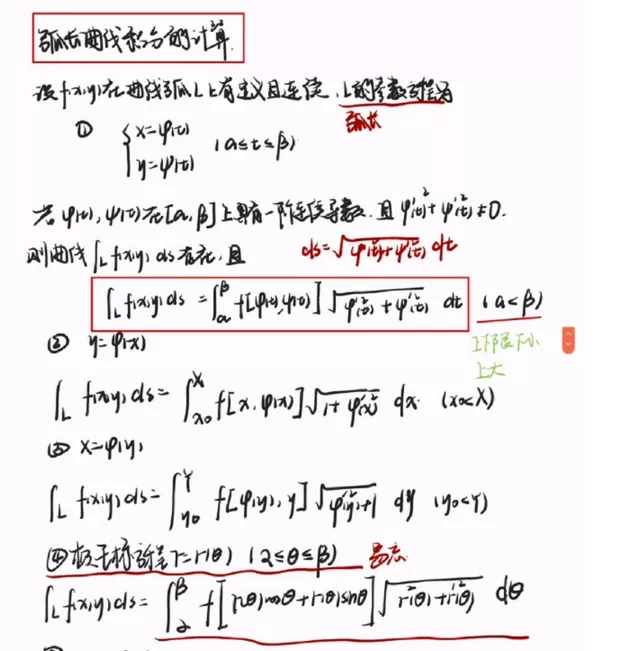 弧长曲线积分的计算
设f(x,y)在曲线弧L上有定义且连续,L的参数方程为
弧长
① { x=φ(t) y=ψ(t) (α≤t≤β)
若φ(t),ψ(t)在[α,β]上具有一阶连续导数,且φ'²(t)+ψ'²(t)≠0.
则曲线∫_L f(x,y)ds存在,且 ds=√(φ'²(t)+ψ'²(t)) dt
∫_L f(x,y)ds = ∫_α^β f[φ(t),ψ(t)]√(φ'²(t)+ψ'²(t)) dt (α<β)
② y=φ(x)
上下限下小
上大
∫_L f(x,y)ds = ∫_{x0}^X f[x,φ(x)]√(1+φ'²(x)) dx (x0<X)
③ x=φ(y)
∫_L f(x,y)ds = ∫_{y0}^Y f[φ(y),y]√(φ'²(y)+1) dy (y0<Y)
④极坐标方程r=r(θ) (α≤θ≤β) 易忘
∫_L f(x,y)ds = ∫_α^β f[r(θ)cosθ+r(θ)sinθ]√(r²(θ)+r'²(θ)) dθ